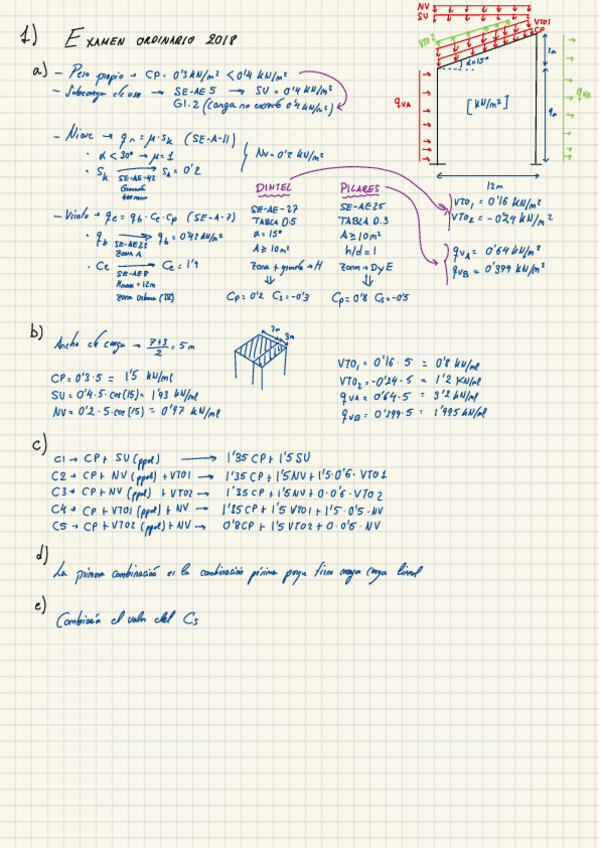 1) EXAMEN ORDINARIO 2018
NV
SU
VTO1
CP
VTO2
α=15°
1m
qVA
[KN/m²]
qVB
12m
a) - Peso propio → CP = 0'3 kN/m² < 0'4 kN/m²
- Subcarga de uso → SE-AE 5 → SU = 0'4 kN/m²
G1.2 (carga no excede 0'4 kN/m²)
- Nieve → qn = μ·Sk (SE-A-11)
· α < 30° → μ = 1
NV = 0'2 kN/m²
· Sk → SA = 0'2
SE-AE-42
Granada
- Viento → qe = qb · Ce · Cp (SE-A-7)
· qb → qb = 0'42 kN/m²
SE-AE23
Zona A
· Ce → Ce = 1'9
SE-AE8
Hmax = 12m
Zona Urbana (IV)
DINTEL
SE-AE-27
TABLA D.5
α = 15°
A ≥ 10m²
Zona + grande → H
⇓
Cp = 0'2 Cs = -0'3
PILARES
SE-AE25
TABLA D.3
A ≥ 10m²
h/d = 1
Zona → D y E
⇓
Cp = 0'8 Cs = -0'5
VTO1 = 0'16 kN/m²
VTO2 = -0'24 kN/m²
qVA = 0'64 kN/m²
qVB = 0'399 kN/m²
b) Ancho de carga → 7+3/2 = 5m
7m
3m
CP = 0'3·5 = 1'5 kN/ml
SU = 0'4·5·cos(15) = 1'93 kN/ml
NV = 0'2·5·cos(15) = 0'97 kN/ml
VTO1 = 0'16·5 = 0'8 kN/ml
VTO2 = -0'24·5 = 1'2 kN/ml
qVA = 0'64·5 = 3'2 kN/ml
qVB = 0'399·5 = 1'995 kN/ml
c)
C1 → CP + SU (ppal) → 1'35 CP + 1'5 SU
C2 → CP + NV (ppal) + VTO1 → 1'35 CP + 1'5 NV + 1'5·0'6·VTO1
C3 → CP + NV (ppal) + VTO2 → 1'35 CP + 1'5 NV + 0·0'6·VTO2
C4 → CP + VTO1 (ppal) + NV → 1'35 CP + 1'5 VTO1 + 1'5·0'5·NV
C5 → CP + VTO2 (ppal) + NV → 0'8 CP + 1'5 VTO2 + 0·0'5·NV
d)
La primera combinación es la combinación pésima porque tiene mayor carga lineal
e)
Cambiaría el valor del Cs